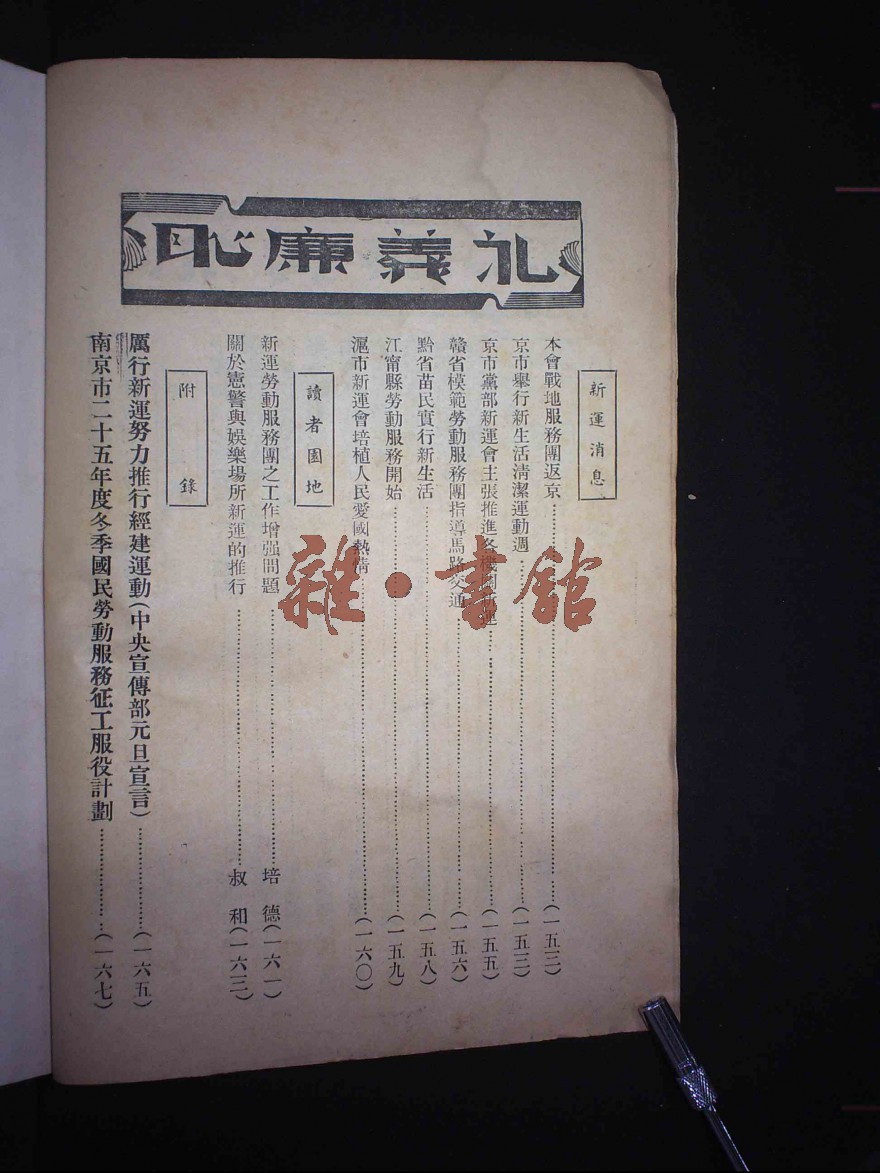 礼義廉恥
新運消息
本會戰地服務團返京……(一五三)
京市舉行新生活清潔運動週……(一五三)
京市黨部新運會主張推進各機關新運……(一五五)
贛省模範勞動服務團指導馬路交通……(一五六)
黔省苗民實行新生活……(一五八)
江甯縣勞動服務開始……(一五九)
滬市新運會培植人民愛國熱情……(一六〇)
讀者園地
新運勞動服務團之工作增强問題……培德(一六一)
關於憲警與娛樂場所新運的推行……叔和(一六三)
附錄
厲行新運努力推行經建運動(中央宣傳部元旦宣言)……(一六五)
南京市二十五年度冬季國民勞動服務征工服役計劃……(一六七)
雜·書館